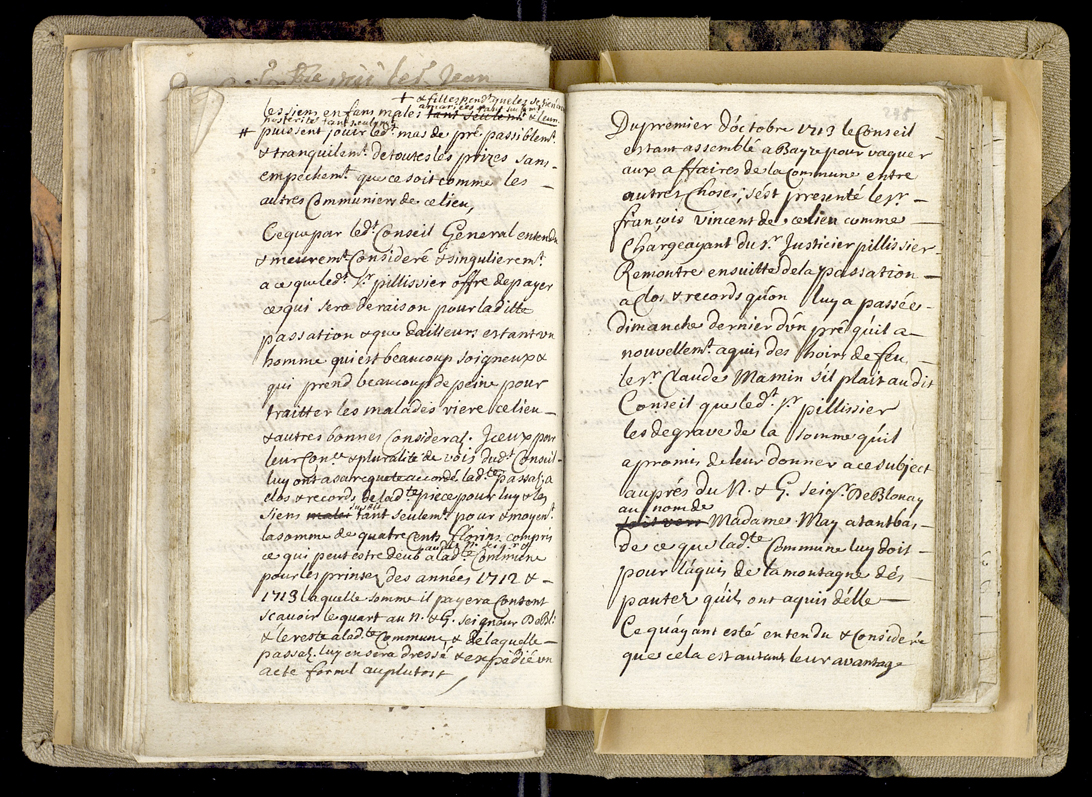 les siens enfans males tant seulem.t & leur
posterité tant seulem.t
+ & filles pend.t que les
amariées tant seulem.t
# puissent jouir led.t mas de pré passiblem.t
& tranquilem.t de toutes les prizes sans
empechem.t que ce soit comme les —
autres Communiers de ce lieu,
Ce que par led.t Conseil General entendu
& meurem.t Consideré & singulierem.t
a ce que led.t S.r pillisvier offre de payer
ce qui sera de raison pour laditte
passation & que dailleurs estant un
homme qui est beaucoup soigneux &
qui prend beaucoup de peine pour
traitter les malades viere ce lieu —
& autres bonnes Considerat. Jceux par
leur Con.ce & pluralité de vois dud.t Conseil
luy ont a sa requete accordé lad.te passat. a
clos & records de lad.te piéce pour luy & les
susdit
siens males tant seulem.t pour & moyen.t
la somme de quatre Cents florins compris
ce qui peut estre deub a lad.te Commune
pour les prinses des années 1712 & —
1713 laquelle somme il payera Content
scavoir le quart au N. & G. Seigneur DeBl:
& le reste a lad.te Commune, & de laquelle —
passat. luy en sera dressé & expedié un
acte formel au plutost
285
Du premier d'octobre 1713 le Conseil
estant assemblé a Bayze pour vaquer
aux affaires de la Commune entre
autres Choses, s'est presenté le S.r —
françois vincent de ce lieu comme —
Chargeayant du S.r Justicier pillissier
Remontre ensuitte de la passation —
a clos & records qu'on luy a passée —
dimanche dernier d'un pré qu'il a —
nouvellem.t aquis des hoirs de feu
le S.r Claude Mamin s'il plait au dit
Conseil que led.t S.r pillissier
les degrave de la somme qu'il
a promis de leur donner a ce subject
auprés du N. & G. Seig.r DeBlonay
au nom de
soit vers Madame May a tant bas —
de ce que lad.te Commune luy doit —
pour l'aquis de la montagne dés —
pautex qu'ils ont aquis d'elle —
Ce qu'ayant esté entendu & Considéré
que cela est autant leur avantage